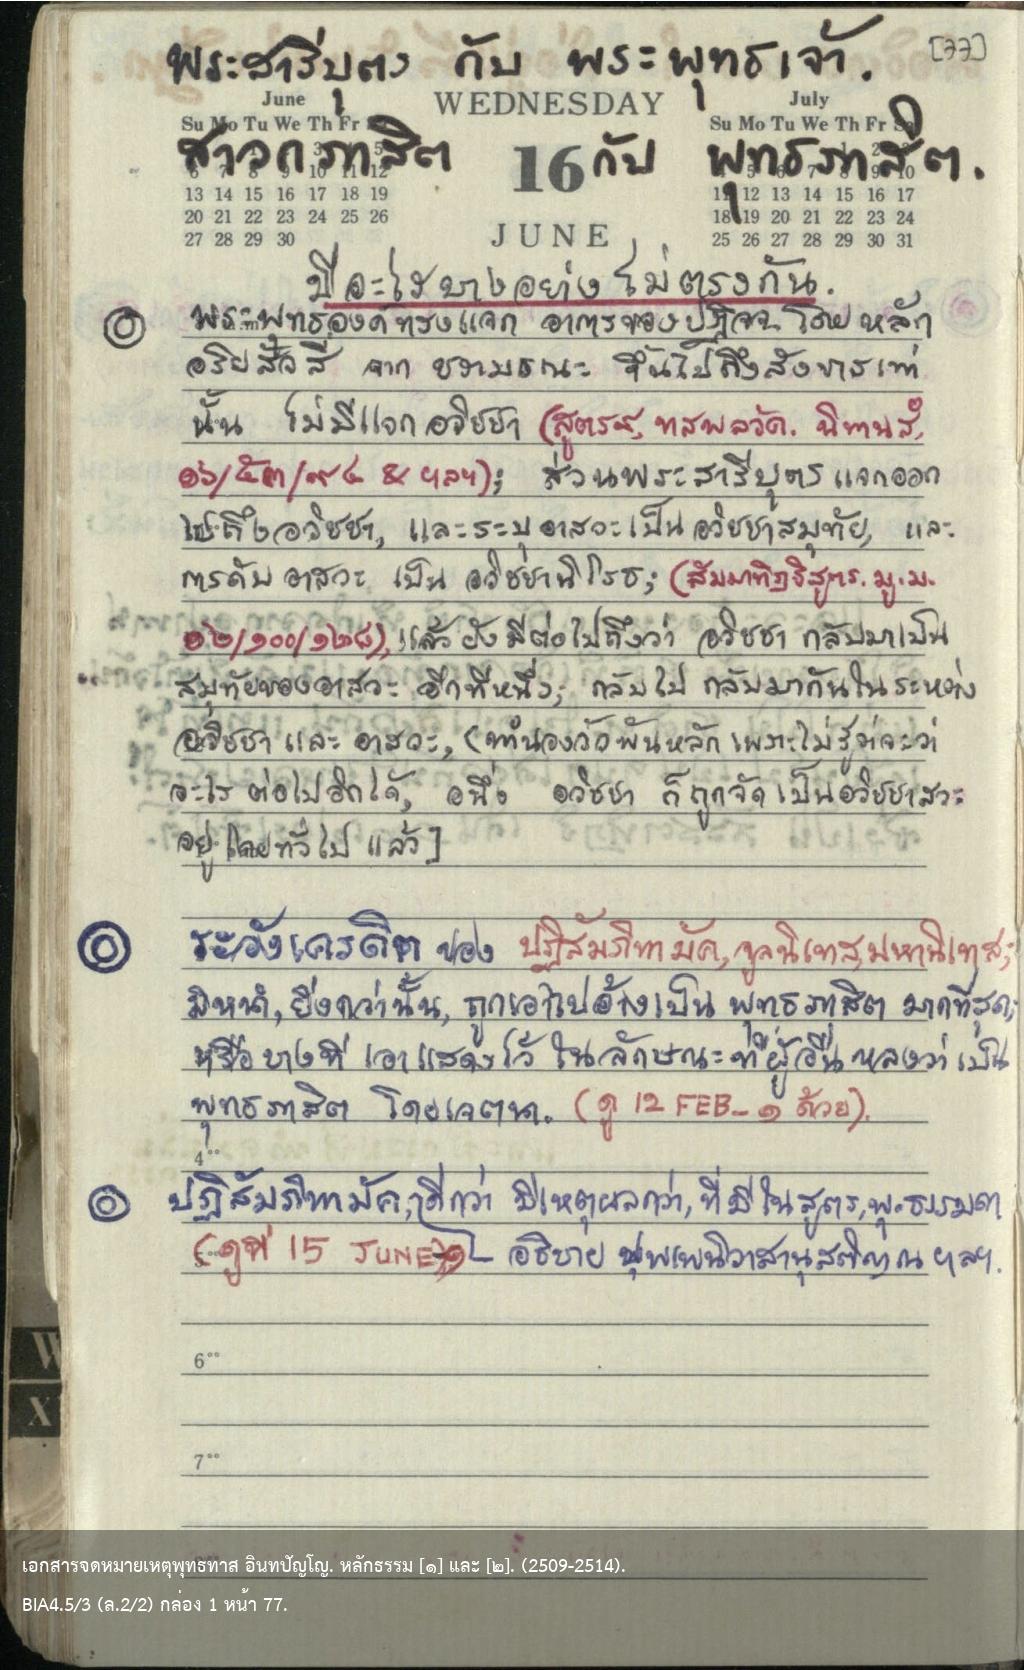 พระสารีบุตร กับ พระพุทธเจ้า. [77]
June WEDNESDAY July
Su Mo Tu We Th Fr Su Mo Tu We Th Fr Sa
สาวกภาสิต 16 กับ พุทธภาสิต.
6 7 8 9 10 11 12
13 14 15 16 17 18 19 11 12 13 14 15 16 17
20 21 22 23 24 25 26 18 19 20 21 22 23 24
27 28 29 30 JUNE 25 26 27 28 29 30 31
มีอะไรบางอย่าง ไม่ตรงกัน.
พระพุทธองค์ทรงแจก อาการของปฏิจจ โดย หลัก
อริยสัจสี่ จาก ชรามรณะ ขึ้นไปถึงสังขารเท่า
นั้น ไม่มีแจกอวิชชา (สูตร๘, ทสพลวัค. นิทานสํ.
๑๖/๕๓/๙๔ & ฯลฯ); ส่วนพระสารีบุตร แจกออก
ไปถึงอวิชชา, และระบุอาสวะเป็นอวิชชาสมุทัย, และ
การดับอาสวะ เป็น อวิชชานิโรธ; (สัมมาทิฏฐิสูตร. มู.ม.
๑๒/๑๐๐/๑๒๘), แล้วยังมีต่อไปถึงว่า อวิชชา กลับมาเป็น
สมุทัยของอาสวะ อีกทีหนึ่ง; กลับไป กลับมากันในระหว่าง
อวิชชา และ อาสวะ, (ทำนองวัวพันหลัก เพราะไม่รู้ว่าจะว่า
อะไร ต่อไปอีกได้, อนึ่ง อวิชชา ก็ถูกจัดเป็นอวิชชาสวะ
อยู่โดยทั่วไป แล้ว]
ระวังเครดิต ของ ปฏิสัมภิทามัค, จูลนิเทส, มหานิเทส;
มิหนำ, ยิ่งกว่านั้น, ถูกเอาไปอ้างเป็น พุทธภาสิต มากที่สุด;
หรือบางที เอาแสดงไว้ ในลักษณะที่ผู้อื่นหลงว่าเป็น
พุทธภาสิต โดยเจตนา. (ดู 12 FEB-๑ ด้วย).
4⁰⁰
ปฏิสัมภิทามัค, ดีกว่า มีเหตุผลกว่า, ที่มีในสูตร,
(ดูที่ 15 JUNE-๑) อธิบาย ปุพเพนิวาสานุสสติญาณ ฯลฯ.
6⁰⁰
7⁰⁰
เอกสารจดหมายเหตุพุทธทาส อินทปัญโญ. หลักธรรม [๑] และ [๒]. (2509-2514).
BIA4.5/3 (ล.2/2) กล่อง 1 หน้า 77.